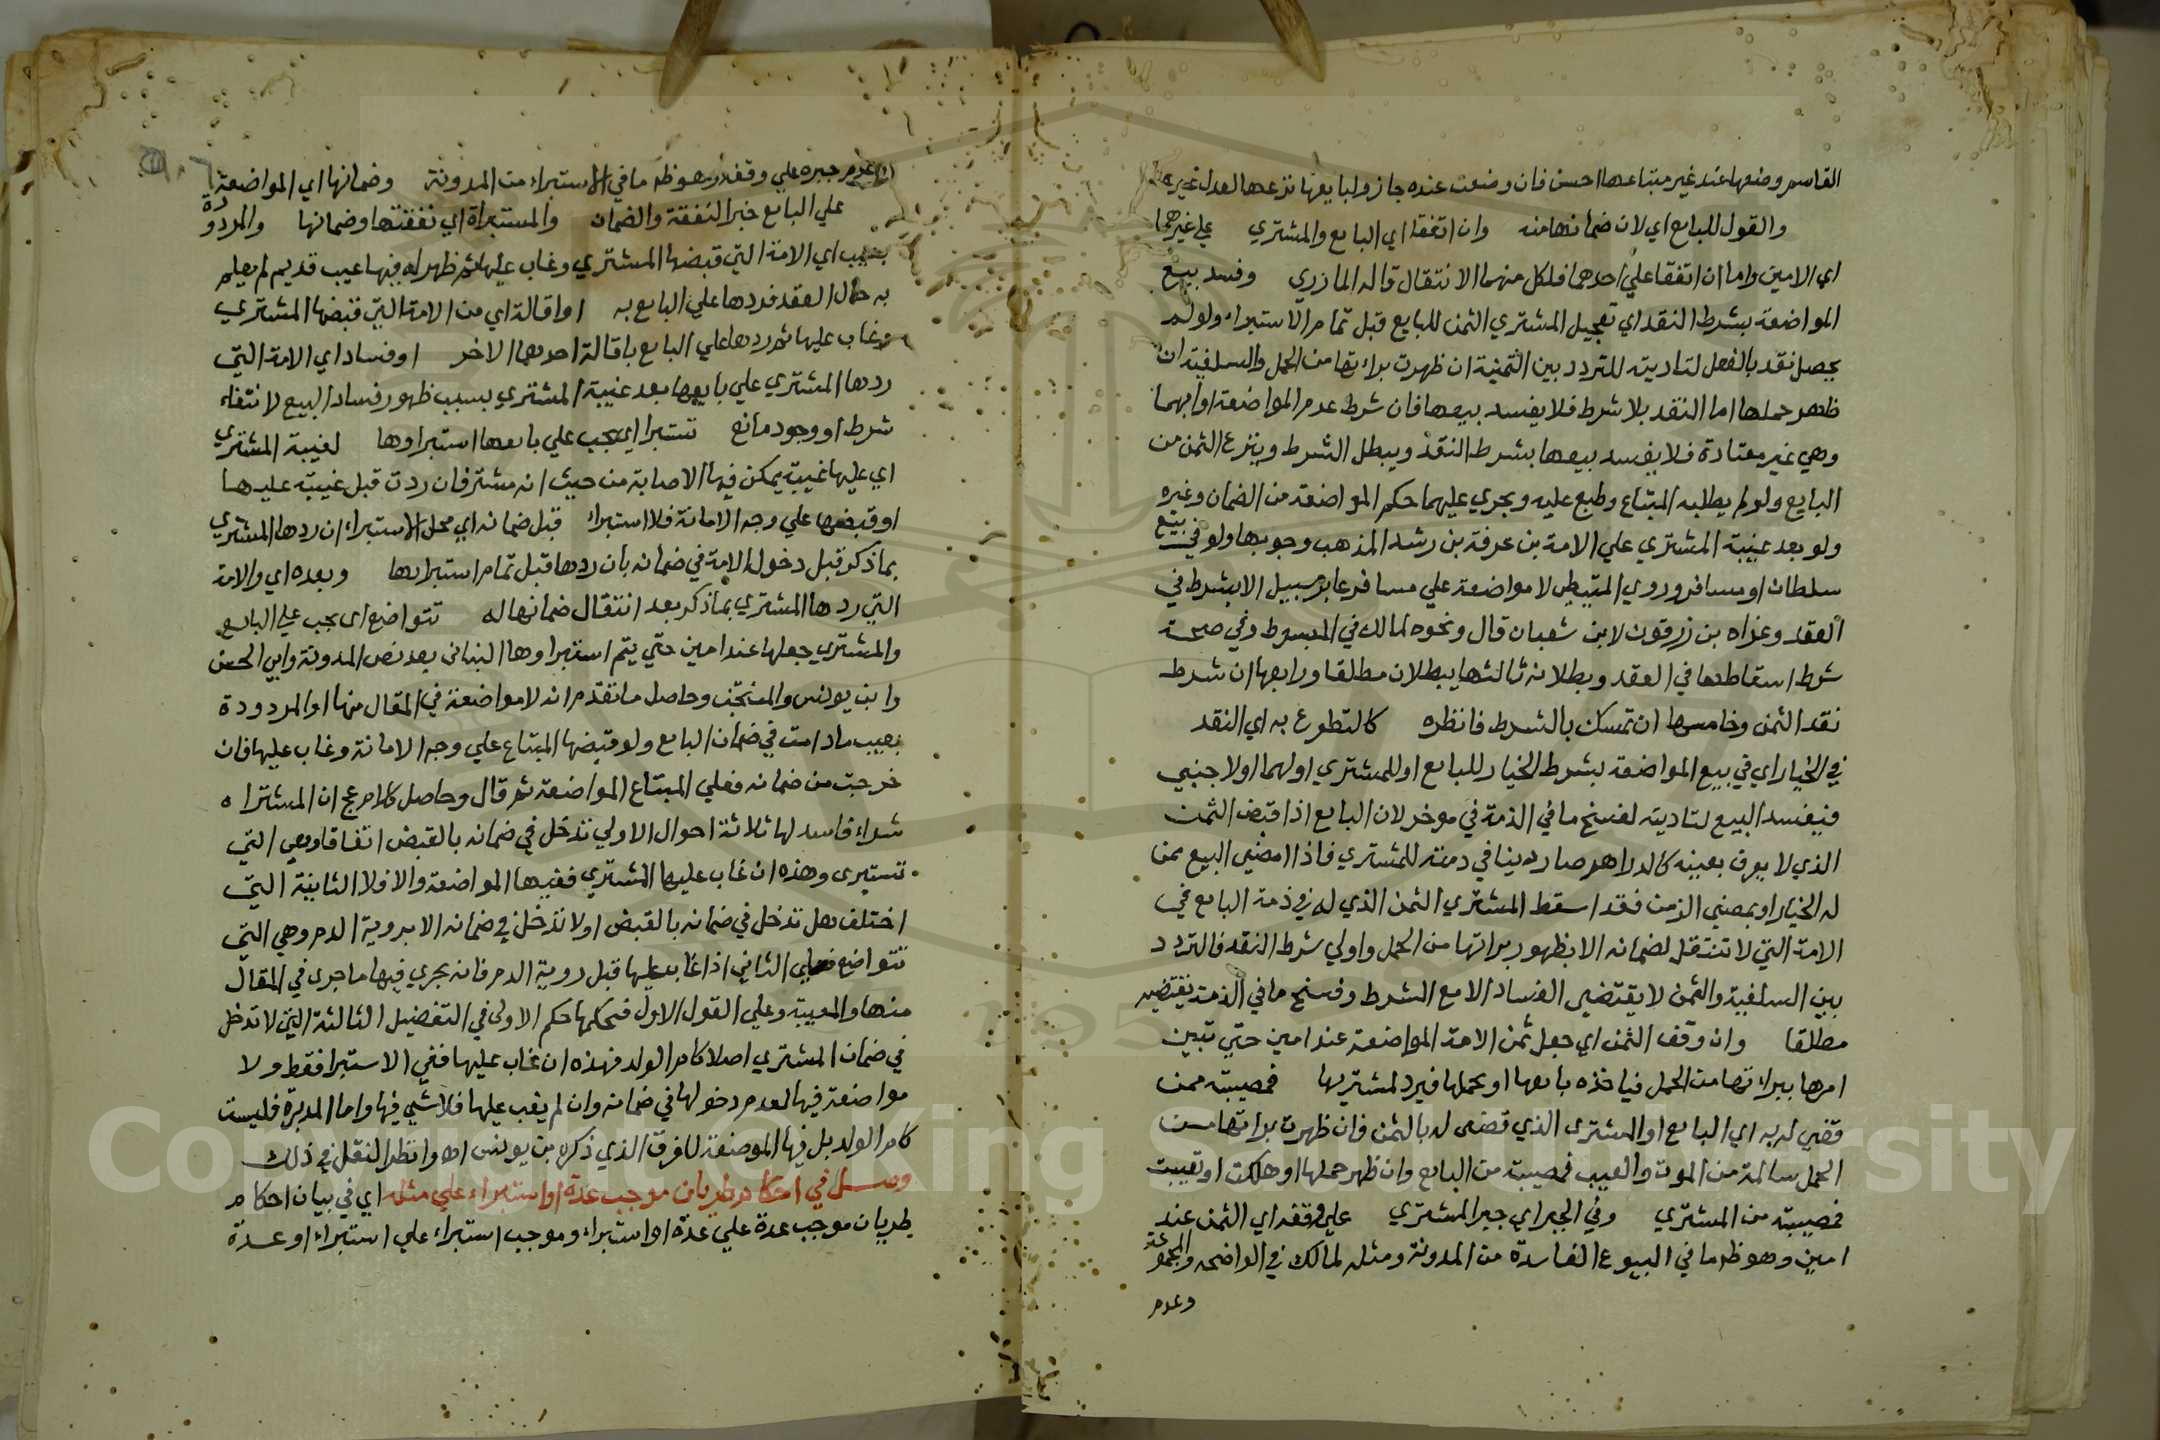 القاسم وضعها عند غير مبتاعها احسن فان وضعت عنده جاز ولبايعها نزعها لعدل غيره
والقول للبايع اي لان ضمانها منه وان اتفقا اي البايع والمشتري علي غيرهما
اي الامين واما ان اتفقا علي احدهما فلكل منهما الانتقال قاله المازري وفسد بيع
المواضعة بشرط النقد اي تعجيل المشتري الثمن للبايع قبل تمام الاستبراء ولو لم
يحصل نقد بالفعل لتاديته للتردد بين الثمنية ان ظهرت براءتها من الحمل والسلفية ان
ظهر حملها اما النقد بلا شرط فلا يفسد بيعها فان شرط عدم المواضعة او ابهما
وهي غير معتادة فلا يفسد بيعها بشرط النقد ويبطل الشرط وينزع الثمن من
البايع ولو لم يطلبه المبتاع وطبع عليه ويجري عليهما حكم المواضعة من الضمان وغيره
ولو بعد غيبة المشتري علي الامة بن عرفة بن رشد المذهب وجوبها ولو في بيع
سلطان او مسافر وروي المتيطي لا مواضعة علي مسافر عابر سبيل الا بشرط في
العقد وعزاه بن زرقون لابن شعبان قال ونحوه لمالك في المبسوط وفي صحة
شرط اسقاطها في العقد وبطلانه ثالثها يبطلان مطلقا ورابعها ان شرط
نقد الثمن وخامسها ان تمسك بالشرط فانظره كالتطوع به اي النقد
في الخيار اي في بيع المواضعة بشرط الخيار للبايع او للمشتري او لهما او لاجنبي
فيفسد البيع لتاديته لفسخ ما في الذمة في موخر لان البايع اذا قبض الثمن
الذي لا يعرف بعينه كالدراهم صار دينا في ذمته للمشتري فاذا امضي البيع من
له الخيار او بمضي الزمن فقد اسقط المشتري الثمن الذي له في ذمة البايع في
الامة التي لا تنتقل لضمانه الا بظهور براتها من الحمل واولي شرط النقد فالتردد
بين السلفية والثمن لا يقتضي الفساد الا مع الشرط وفسخ ما في الذمة يقتضيه
مطلقا وان وقف الثمن اي جعل ثمن الامة المواضعة عند امين حتي تبين
امرها ببراءتها من الحمل فياخذه بايعها او بحملها فيرد لمشتريها فمصيبته ممن
قضي له به اي البايع او المشتري الذي قضي له بالثمن فان ظهرت براتها من
الحمل سالمة من الموت والعيب فمصيبته من البايع وان ظهر حملها او هلكت او تعيبت
فمصيبته من المشتري وفي الجبر اي جبر المشتري علي وقفه اي الثمن عند
امين وهو ظ ما في البيوع الفاسدة من المدونة ومثله لمالك في الواضحه والمجموعة
وعدم
عدم جبره علي وقفه وهو ظ ما في الاستبراء من المدونة وضمانها اي المواضعة
علي البايع خبر النفقة والضمان والمستبراة اي نفقتها وضمانها والمردودة
بعيب اي الامة التي قبضها المشتري وغاب عليها ثم ظهر له فيها عيب قديم لم يعلم
به حال العقد فردها علي البايع به او اقالة اي من الامة التي قبضها المشتري
وغاب عليها ثم ردها علي البايع باقالة احدهما الاخر او فساد اي الامة التي
ردها المشتري علي بايعها بعد غيبة المشتري بسبب ظهور فساد البيع لانتفاء
شرط او وجود مانع تستبرا اي يجب علي بايعها استبراوها لغيبة المشتري
اي عليها غيبة يمكن فيها الاصابة من حيث انه مشتر فان ردت قبل غيبته عليها
او قبضها علي وجه الامانة فلا استبراء قبل ضمانه اي محل الاستبراء ان ردها المشتري
بما ذكر قبل دخول الامة في ضمانه بان ردها قبل تمام استبرايها وبعده اي والامة
التي ردها المشتري بما ذكر بعد انتقال ضمانها له تتواضع اي يجب علي البايع
والمشتري جعلها عند امين حتي يتم استبراوها البناني بعد نص المدونة وابي الحسن
وابن يونس والمنتخب وحاصل ما تقدم انه لا مواضعة في المقال منها او المردودة
بعيب ما دامت في ضمان البايع ولو قبضها المبتاع علي وجه الامانة وغاب عليها فان
خرجت من ضمانه فعلي المبتاع المواضعة ثم قال وحاصل كلام عج ان المشتراه
شراء فاسد لها ثلاثة احوال الاولي تدخل في ضمانه بالقبض اتفاقا وهي التي
تستبرى وهذه ان غاب عليها المشتري ففيها المواضعة والا فلا الثانية التي
اختلف هل تدخل في ضمانه بالقبض او لا تدخل في ضمانه الا بروية الدم وهي التي
تتواضع فعلي الثاني اذا غاب عليها قبل روية الدم فانه يجري فيها ما جرى في المقال
منها والمعيبة وعلي القول الاول فحكمها حكم الاولى في التفصيل الثالثة التي لا تدخل
في ضمان المشتري اصلا كام الولد فهذه ان غاب عليها ففي الاستبرا فقط ولا
مواضعة فيها لعدم دخولها في ضمانه وان لم يغب عليها فلا شي فيها واما المدبرة فليست
كام الولد بل فيها المواضعة للفرق الذي ذكره بن يونس اه وانظر النقل في ذلك
فصل في احكام طريان موجب عدة او استبراء علي مثله اي في بيان احكام
طريان موجب عدة علي عدة او استبراء وموجب استبراء علي استبراء او عدة
Copyright © King Saud University